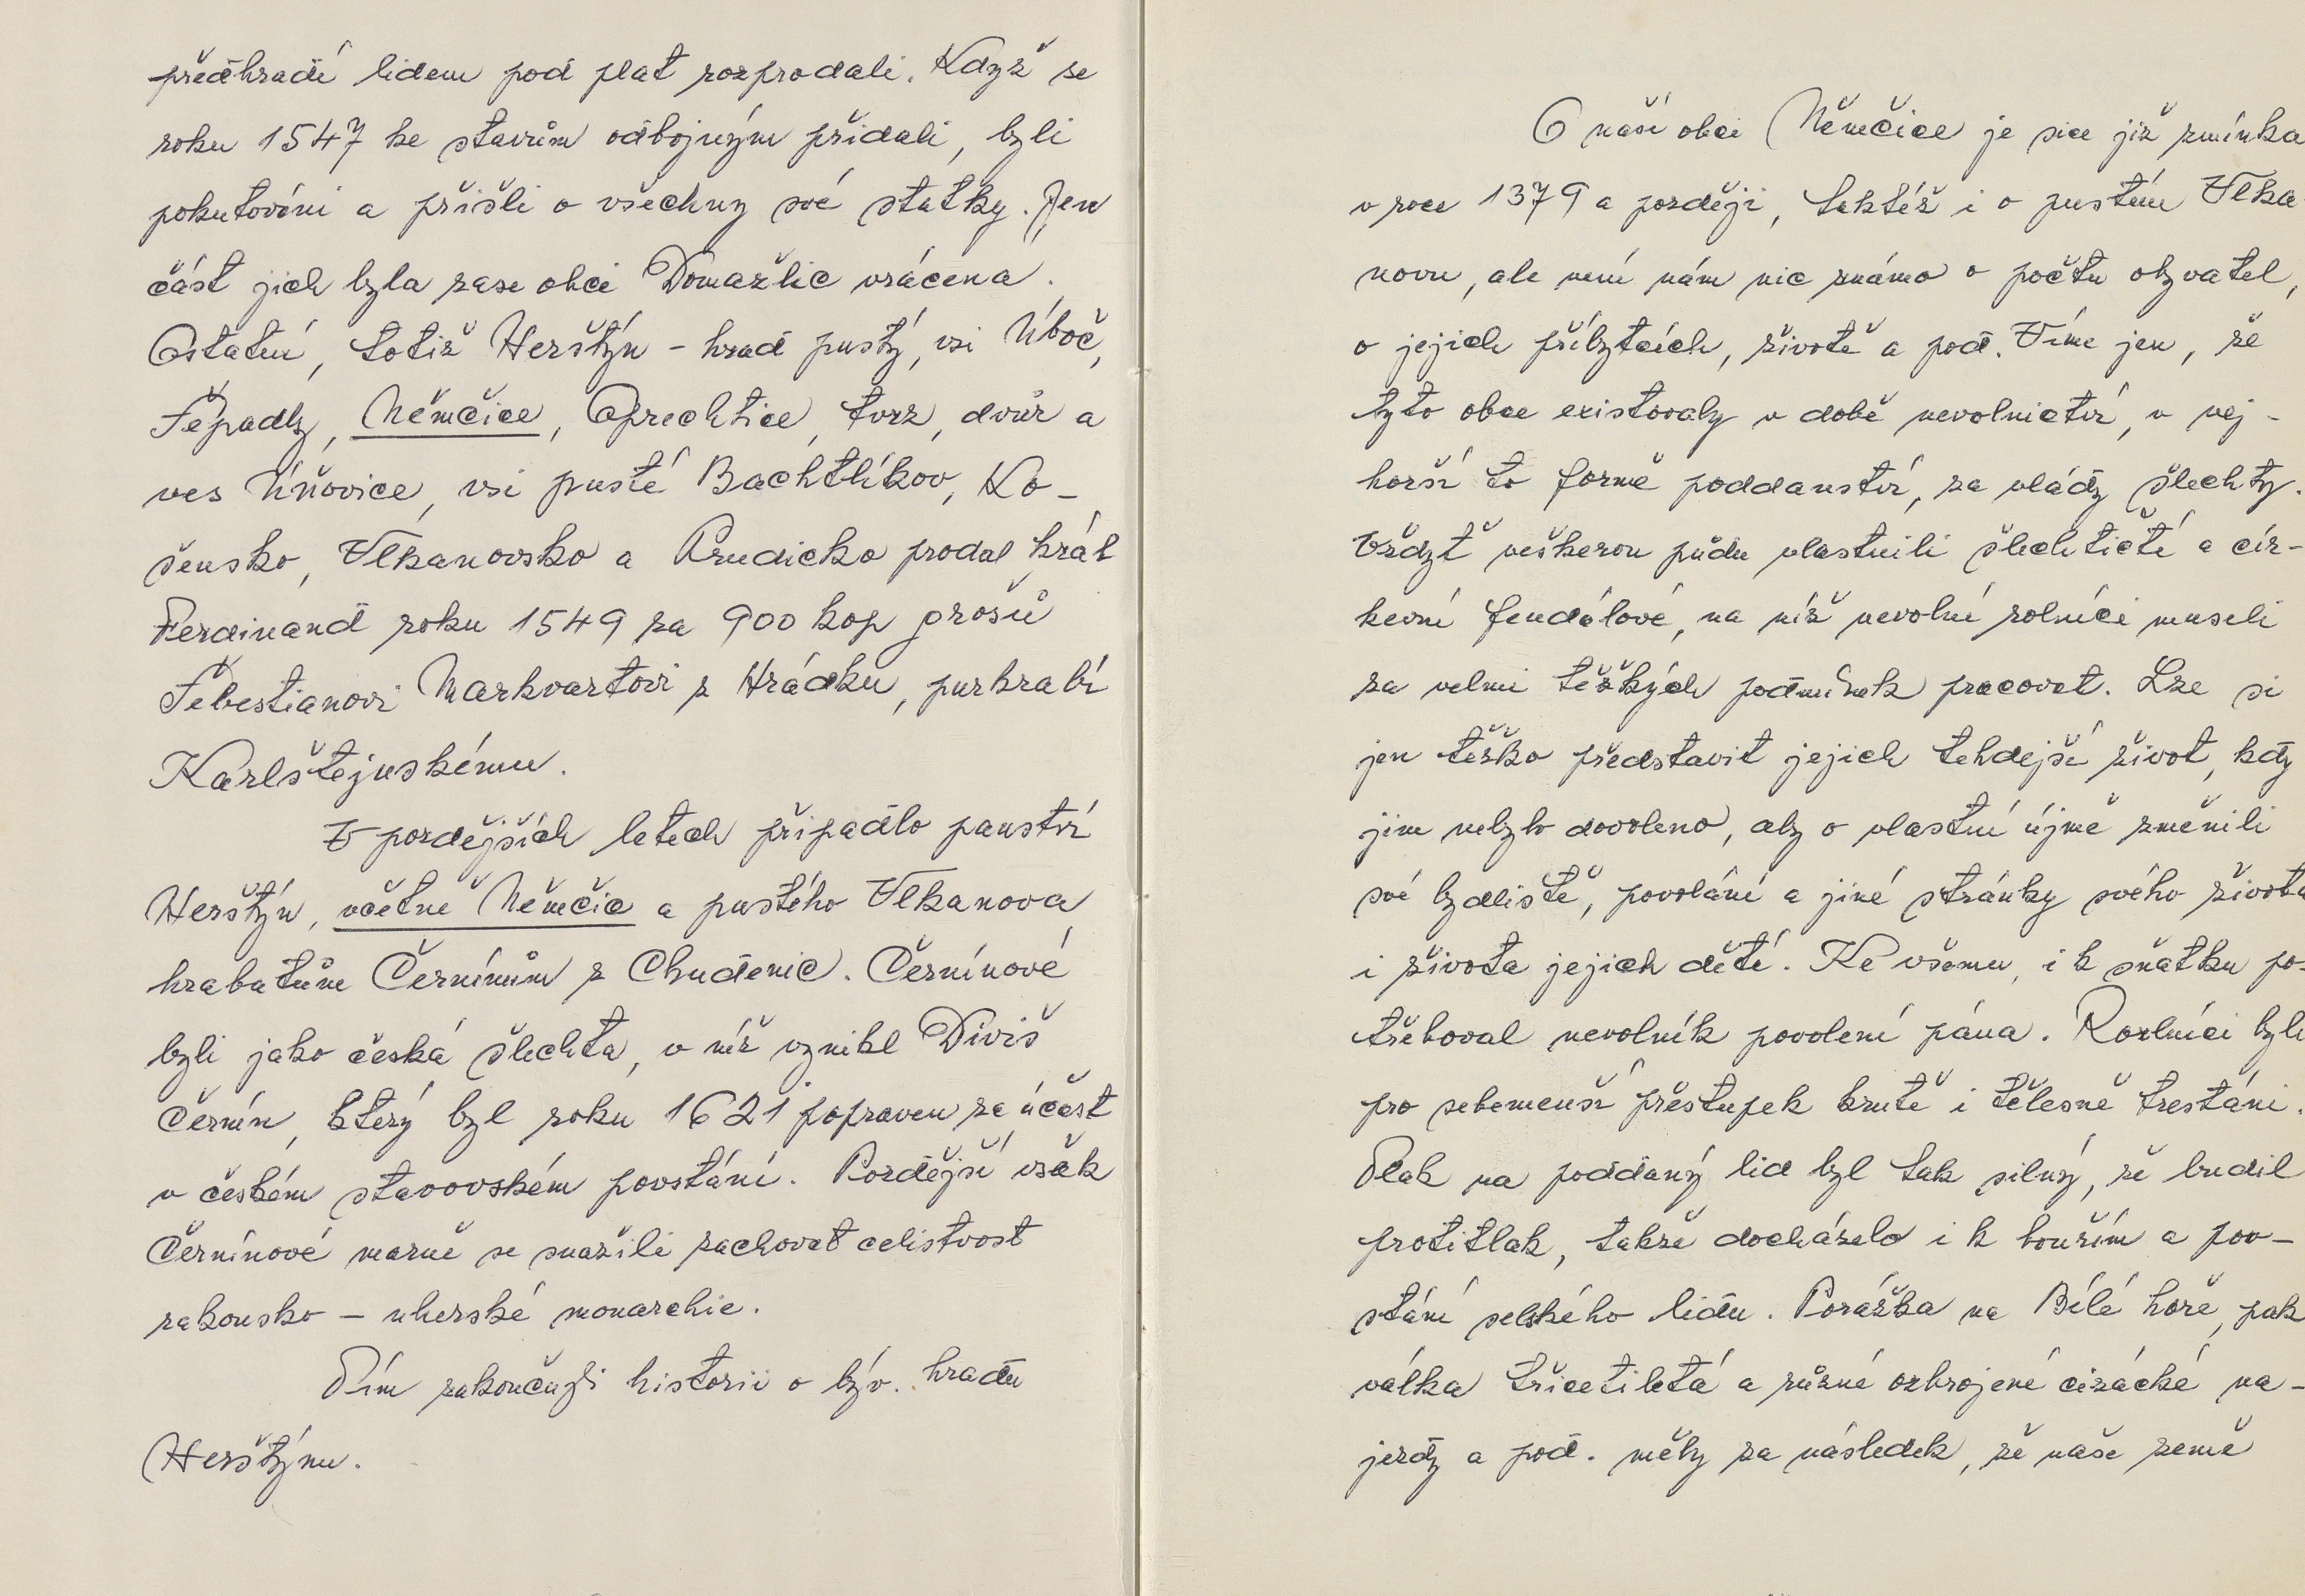 předhradí lidem pod plat rozprodali. Když se
roku 1547 ke stavům odbojným přidali, byli
pokutováni a přišli o všechny své statky. Jen
část jich byla zase obci Domažlic vrácena.
Ostatní, totiž Herštýn - hrad pustý, vsi Úboč,
Šepadly, Němčice, Oprechtice, tvrz, dvůr a
ves Úňovice, vsi pusté Bachtlíkov, Ko-
šensko, Vlkanovsko a Prudicko prodal král
Ferdinand roku 1549 za 900 kop grošů
Šebestianovi Markvartovi z Hrádku, purkrabí
Karlštejnskému.
V pozdějších letech připadlo panství
Herštýn, včetně Němčic a pustého Vlkanova
hrabatům Černínům z Chudenic. Černínové
byli jako česká šlechta, v níž vznikl Diviš
Černín, který byl roku 1621 popraven za účast
v českém stavovském povstání. Pozdější však
Černínové marně se snažili zachovat celistvost
rakousko - uherské monarchie.
Tím zakončuji historii o býv. hradu
Herštýnu.
O naší obci Němčice je sice již zmínka
v roce 1379 a později, taktéž i o pustém Vlka
novu, ale není nám nic známo o počtu obyvatel,
o jejich příbytcích, životě a pod. Víme jen, že
tyto obce existovaly v době nevolnictví, v nej-
horší to formě poddanství, za vlády šlechty.
Vždyť veškerou půdu vlastnili šlechtičtí a cír-
kevní feudálové, na níž nevolní rolníci museli
za velmi těžkých podmínek pracovat. Lze si
jen těžko představit jejich tehdejší život, kdy
jim nebylo dovoleno, aby o vlastní újmě změnili
své bydliště, povolání a jiné stránky svého života
i života jejich dětí. Ke všemu, i k sňatku po-
třeboval nevolník povolení pána. Rozlníci byli
pro sebemenší přestupek krutě i tělesně trestáni.
Tlak na poddaný lid byl tak silný, že budil
protitlak, takže docházelo i k bouřím a pov-
stání selského lidu. Porážka na Bílé hoře, pak
válka třicetiletá a různé ozbrojené cizácké ná-
jezdy a pod. měly za následek, že naše země